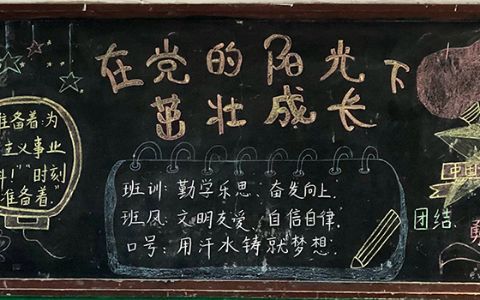 在党的阳光下
茁壮成长
准备着:为
主义事业
斗!”“时刻
准备着”
班训:勤学乐思、奋发向上.
班风:文明友爱、自信自律.
口号:用汗水铸就梦想.
中国
团结
勇